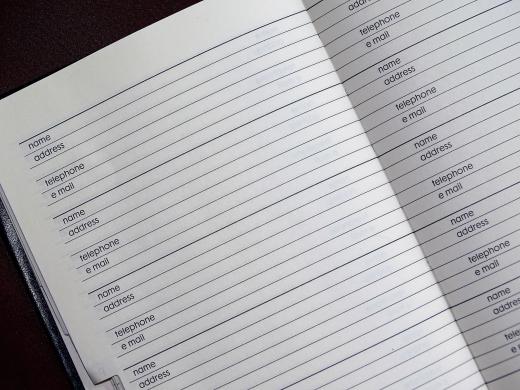 name
address
telephone
e mail
name
address
telephone
e mail
name
address
telephone
e mail
name
address
address
telephone
e mail
name
address
telephone
e mail
name
address
telephone
e mail
name
address
telephone
e mail
name
address
telephone